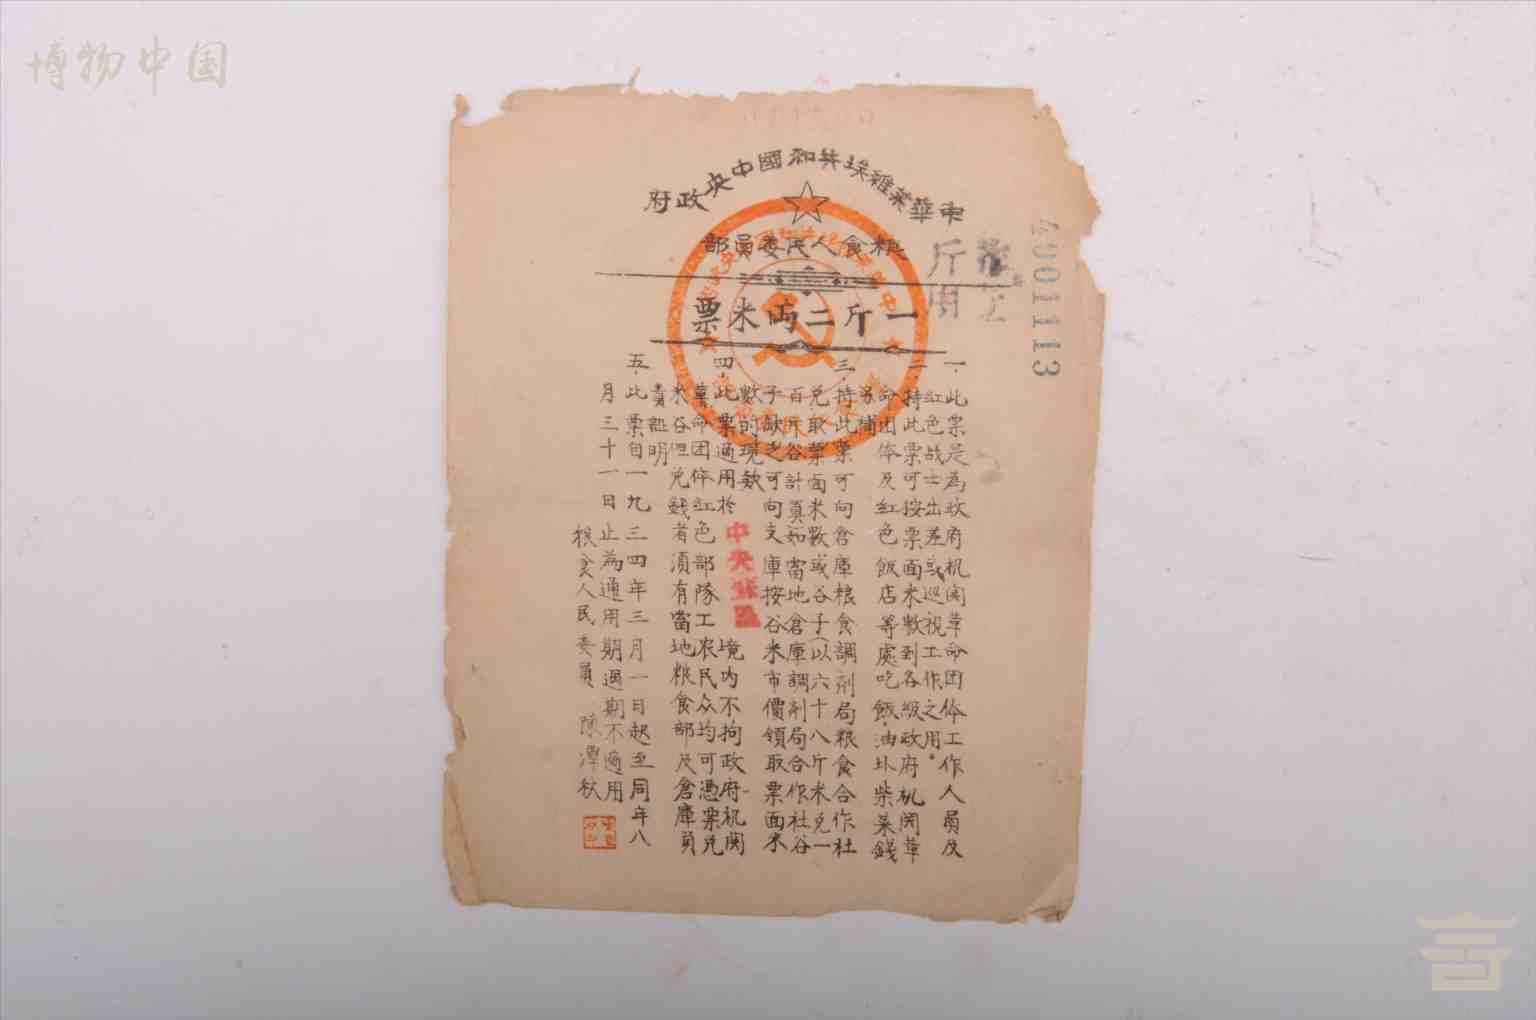 博物中国
中華苏維埃共和國中央政府
粮食人民委員部
一斤二両米票
4001113
斤用
一.此票是為政府机関革命团体工作人員及
紅色战士出差或巡視工作之用。
二.持此票可按票面米數到各級政府机関革
命团体及紅色飯店等處吃飯,油盐柴菜錢
另補
三.持此票可向倉庫粮食調剂局粮食合作社
兌取票面米數或谷子(以六十八斤米兌一
百斤谷計算)如當地倉庫調剂局合作社谷
子缺乏可向支庫按谷米市價領取票面米
數的現款
四.此票通用於中央蘇區境内不拘政府机関
革命团体紅色部隊工农民众均可憑票兌
米谷但兌錢者須有當地粮食部及倉庫負
責証明
五.此票自一九三四年三月一日起至同年八
月三十一日止為通用期過期不適用
粮食人民委員 陳潭秋